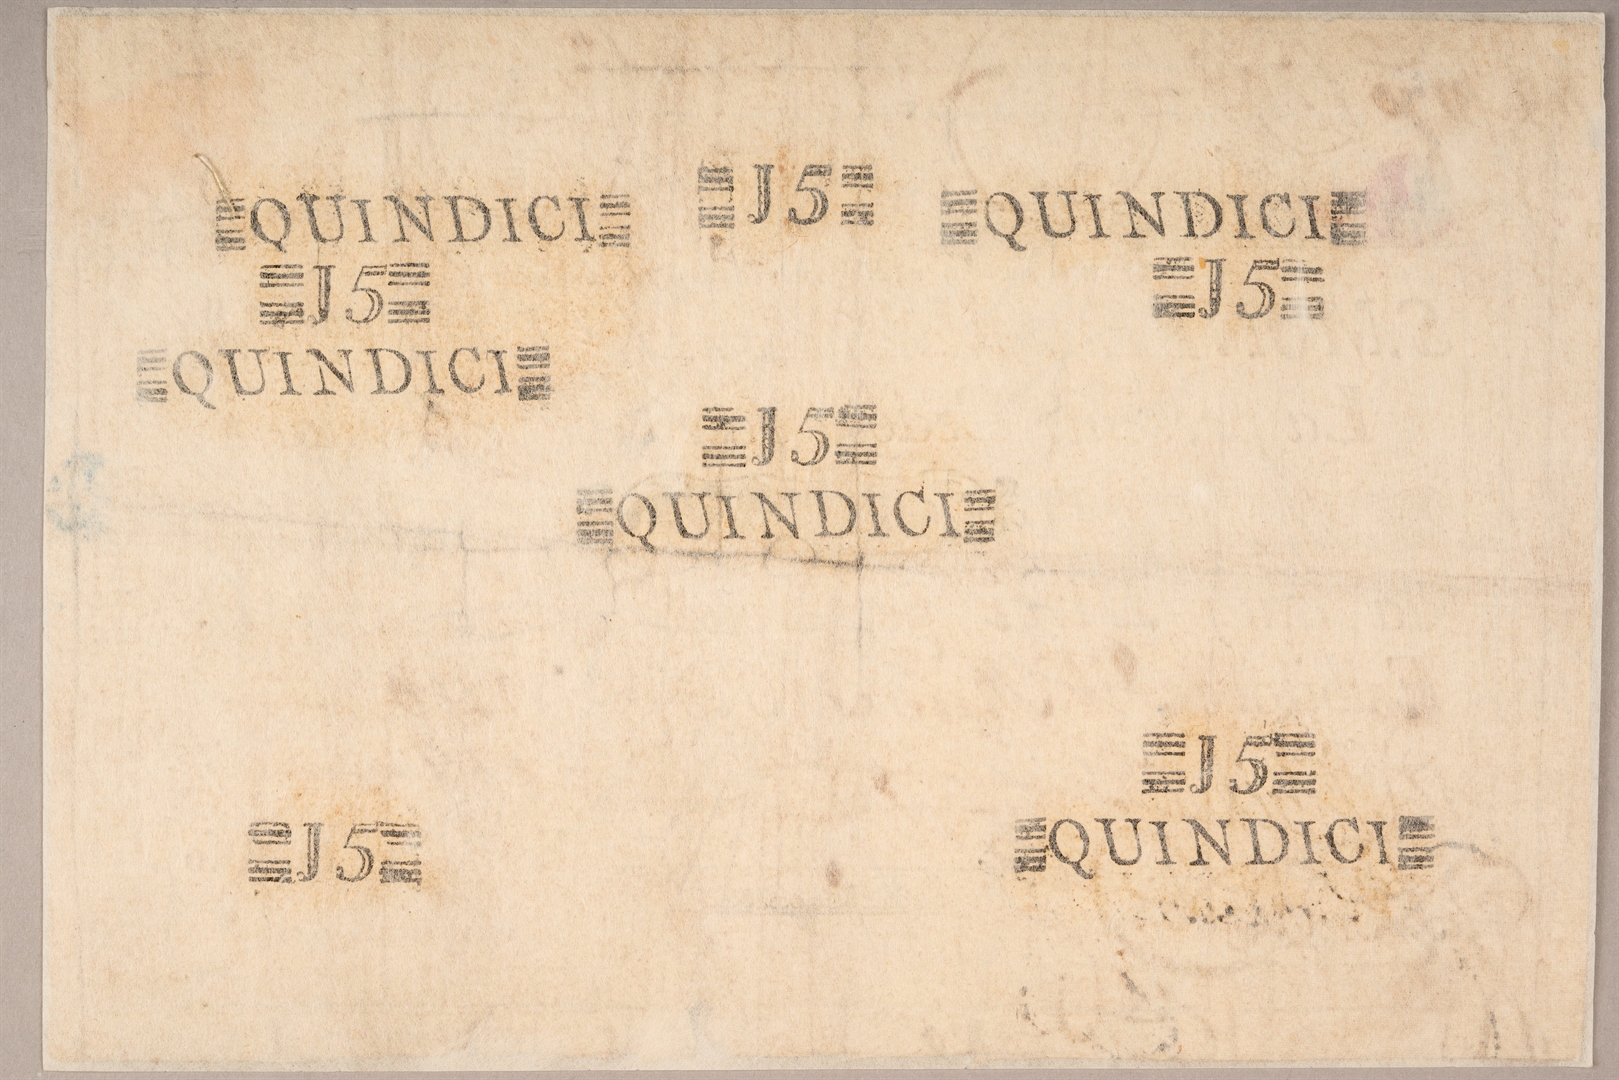 J5
QUINDICI
QUINDICI
J5
J5
QUINDICI
J5
QUINDICI
J5
QUINDICI
J5